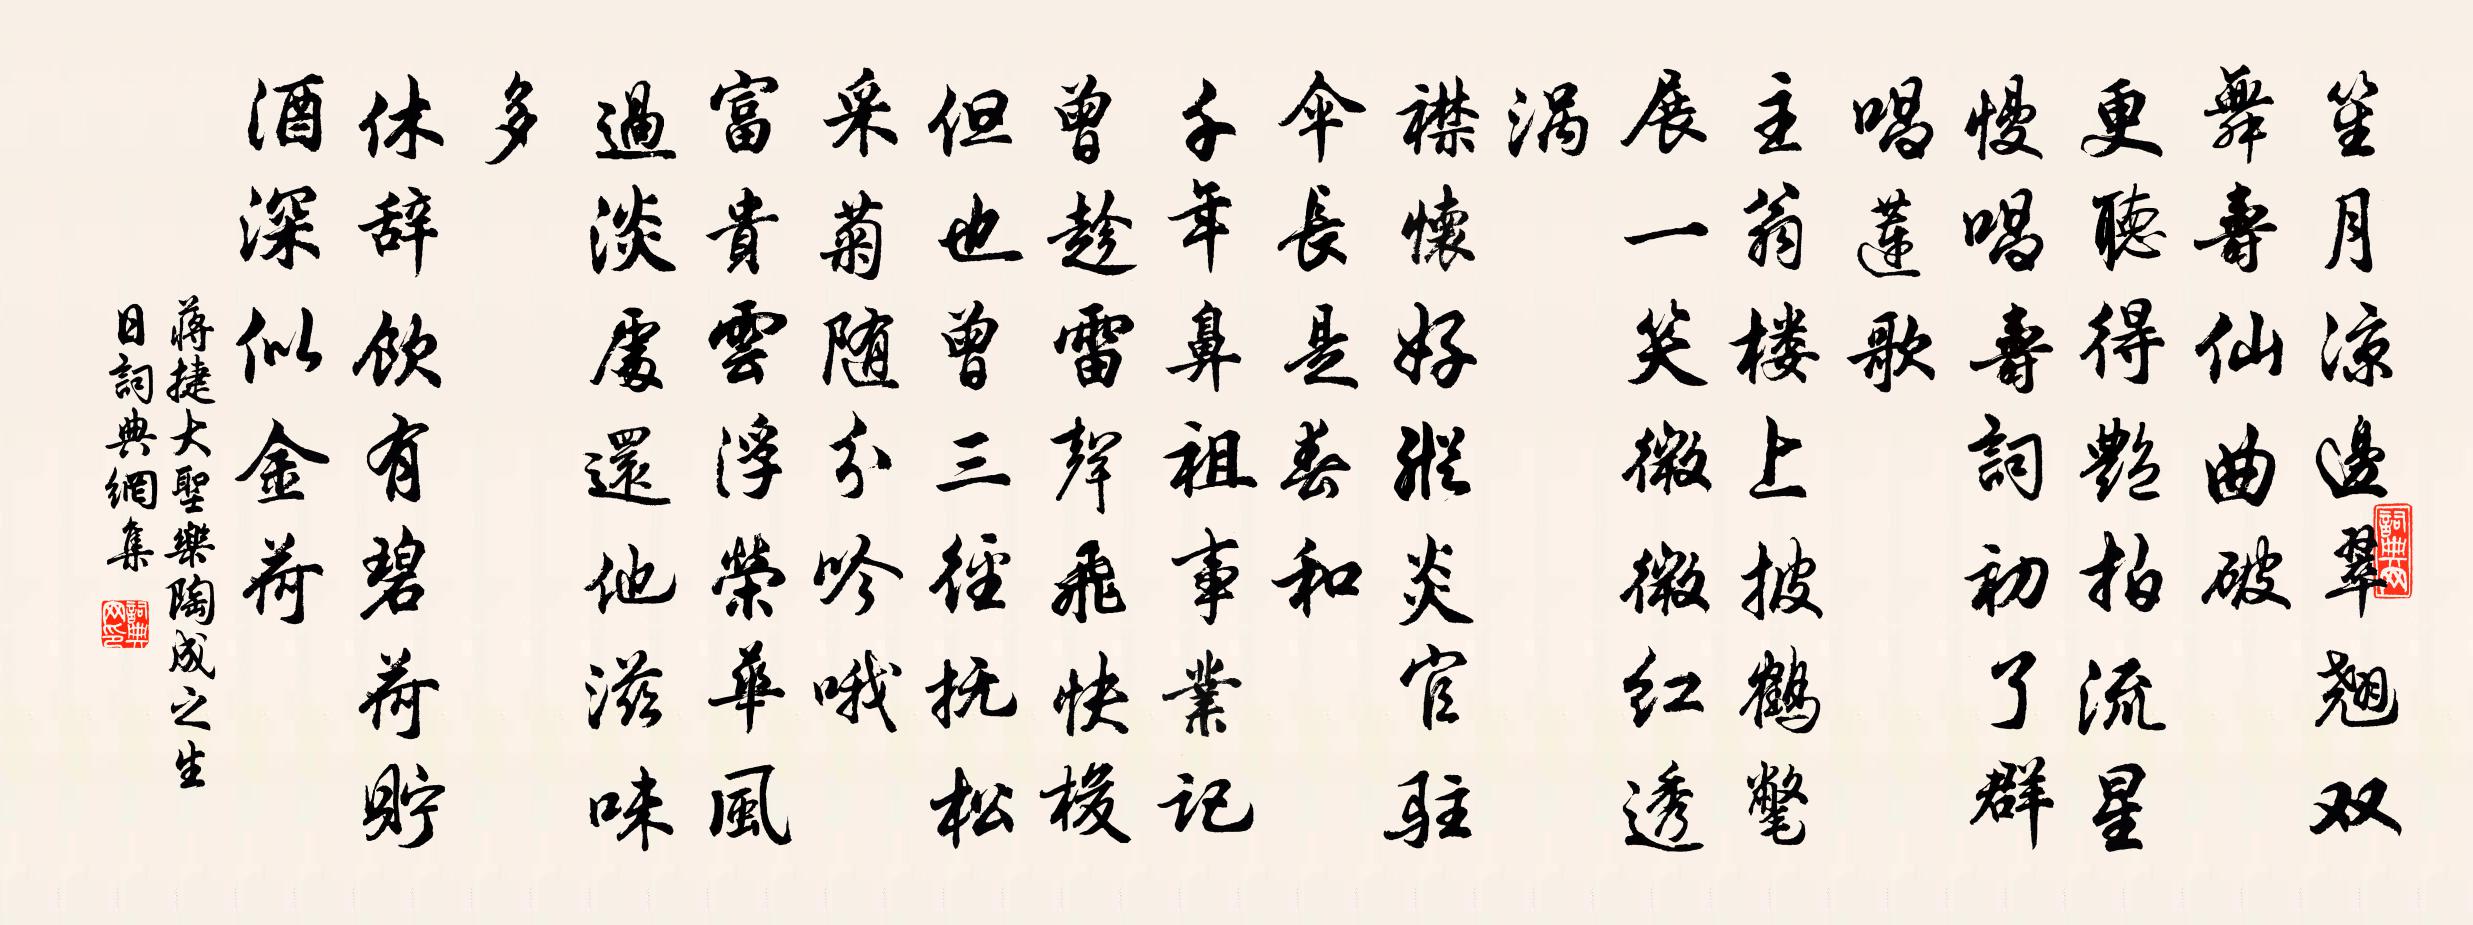 笙月凉邊翠翘双
舞壽仙曲破
更聽得艷拍流星
慢唱壽詞初了群
唱蓮歌
主翁楼上披鶴氅
展一笑微微红透
涡
襟懷好縱炎官駐
伞長是春和
千年鼻祖事業記
曾趁雷聲飛快梭
但也曾三徑抚松
采菊随分吟哦
富貴雲浮榮華風
過淡處還他滋味
多
休辞飲有碧荷貯
酒深似金荷
蒋捷大聖樂陶成之生
日詞典網集
詞典网
詞典网印